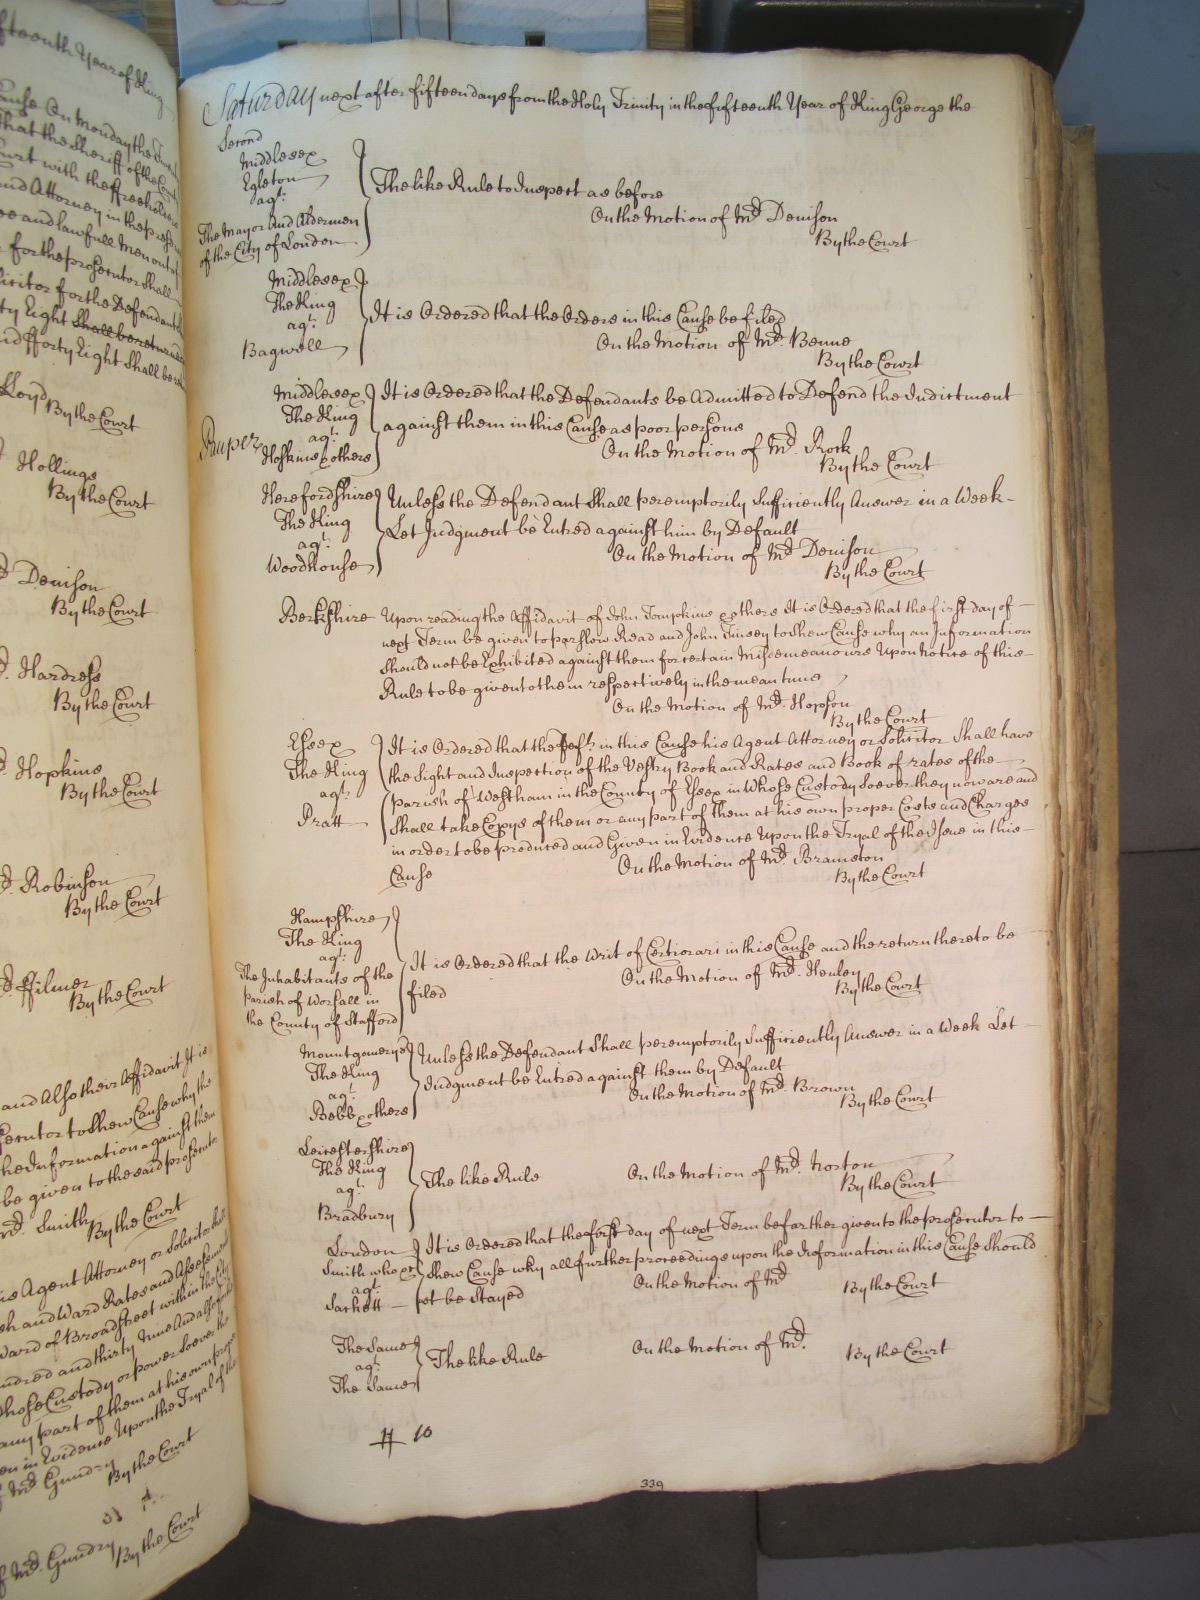 fteenth Year of King
Cause On Monday the
that the Sheriff of the County
Court with the ffreeholders
and Attorney in the presence
ee and lawfull Men out of
for the prosecutor shall
licitor for the Defendant
ty Eight Shall be returned
nd fforty Eight Shall be
Lloyd By the Court
Hollings
By the Court
Denison
By the Court
Hardress
By the Court
Hopkins
By the Court
Robinson
By the Court
ffilmer
By the Court
and Also their Affidavit It is
secutor to Shew Cause why the
he Information against them
be given to the said prosecutor
Smith By the Court
is Agent Attorney or Solicitor shall
sh and Ward Rates and Assessment
Ward of Broadstreet within the City
undred and thirty Nine And also
whose Custody or power Soever the
any part of them at his own proper
en in Evidence Upon the Tryal of the
of Mr. Gundry
By the Court
of Mr. Gundry By the Court
Saturday next after fifteen days from the Holy Trinity in the fifteenth Year of King George the
Second
Middlesex
Egleton
agt.
The Mayor And Aldermen
of the City of London
The like Rule to Inspect as before
On the Motion of Mr. Denison
By the Court
Middlesex
The King
agt.
Bagwell
It is Ordered that the Orders in this Cause be filed
On the Motion of Mr. Benne
By the Court
Pauper
Middlesex
The King
agt.
Hoskins & others
It is Ordered that the Defendants be Admitted to Defend the Indictment
against them in this Cause as poor persons
On the Motion of Mr. Rock
By the Court
Herefordshire
The King
agt.
Woodhouse
Unless the Defendant Shall peremptorily Sufficiently Answer in a Week
Let Judgment be Entred against him by Default
On the Motion of Mr. Denison
By the Court
Berkshire
Upon reading the Affidavit of John Tompkins & others It is Ordered that the first day of
next Term be given to Read and John Tinsey to Shew Cause why an Information
Should not be Exhibited against them for certain Misdemeanours Upon Notice of this
Rule to be given to them respectively in the mean time
On the Motion of Mr. Hopson
By the Court
Essex
The King
agt.
Pratt
It is Ordered that the Deft. in this Cause his Agent Attorney or Solicitor Shall have
the Sight and Inspection of the Vestry Book and Rates and Book of rates of the
parish of Westham in the County of Essex in Whose Custody Soever they now are and
Shall take Copys of them or any part of them at his own proper Costs and Charges
in order to be produced and Given in Evidence Upon the Tryal of the Issue in this
Cause
On the Motion of Mr. Bramston
By the Court
Hampshire
The King
agt.
The Inhabitants of the
parish of Worfall in
the County of Stafford
It is Ordered that the Writ of Certiorari in this Cause and the return thereto be
filed
On the Motion of Mr. Henley
By the Court
Mountgomerys
The King
agt.
Bebb & others
Unless the Defendant Shall peremptorily Sufficiently Answer in a Week Let
Judgment be Entred against them by Default
On the Motion of Mr. Brown
By the Court
Leicestershire
The King
agt.
Bradbury
The like Rule
On the Motion of Mr. Norton
By the Court
London
Smith who &c
agt.
Sackett
It is Ordered that the first day of next Term be farther given to the prosecutor to
Shew Cause why all further proceedings upon the Information in this Cause Should
not be Stayed
On the Motion of Mr.
By the Court
The Same
agt.
The Same
The like Rule
On the Motion of Mr.
By the Court
H 10
339